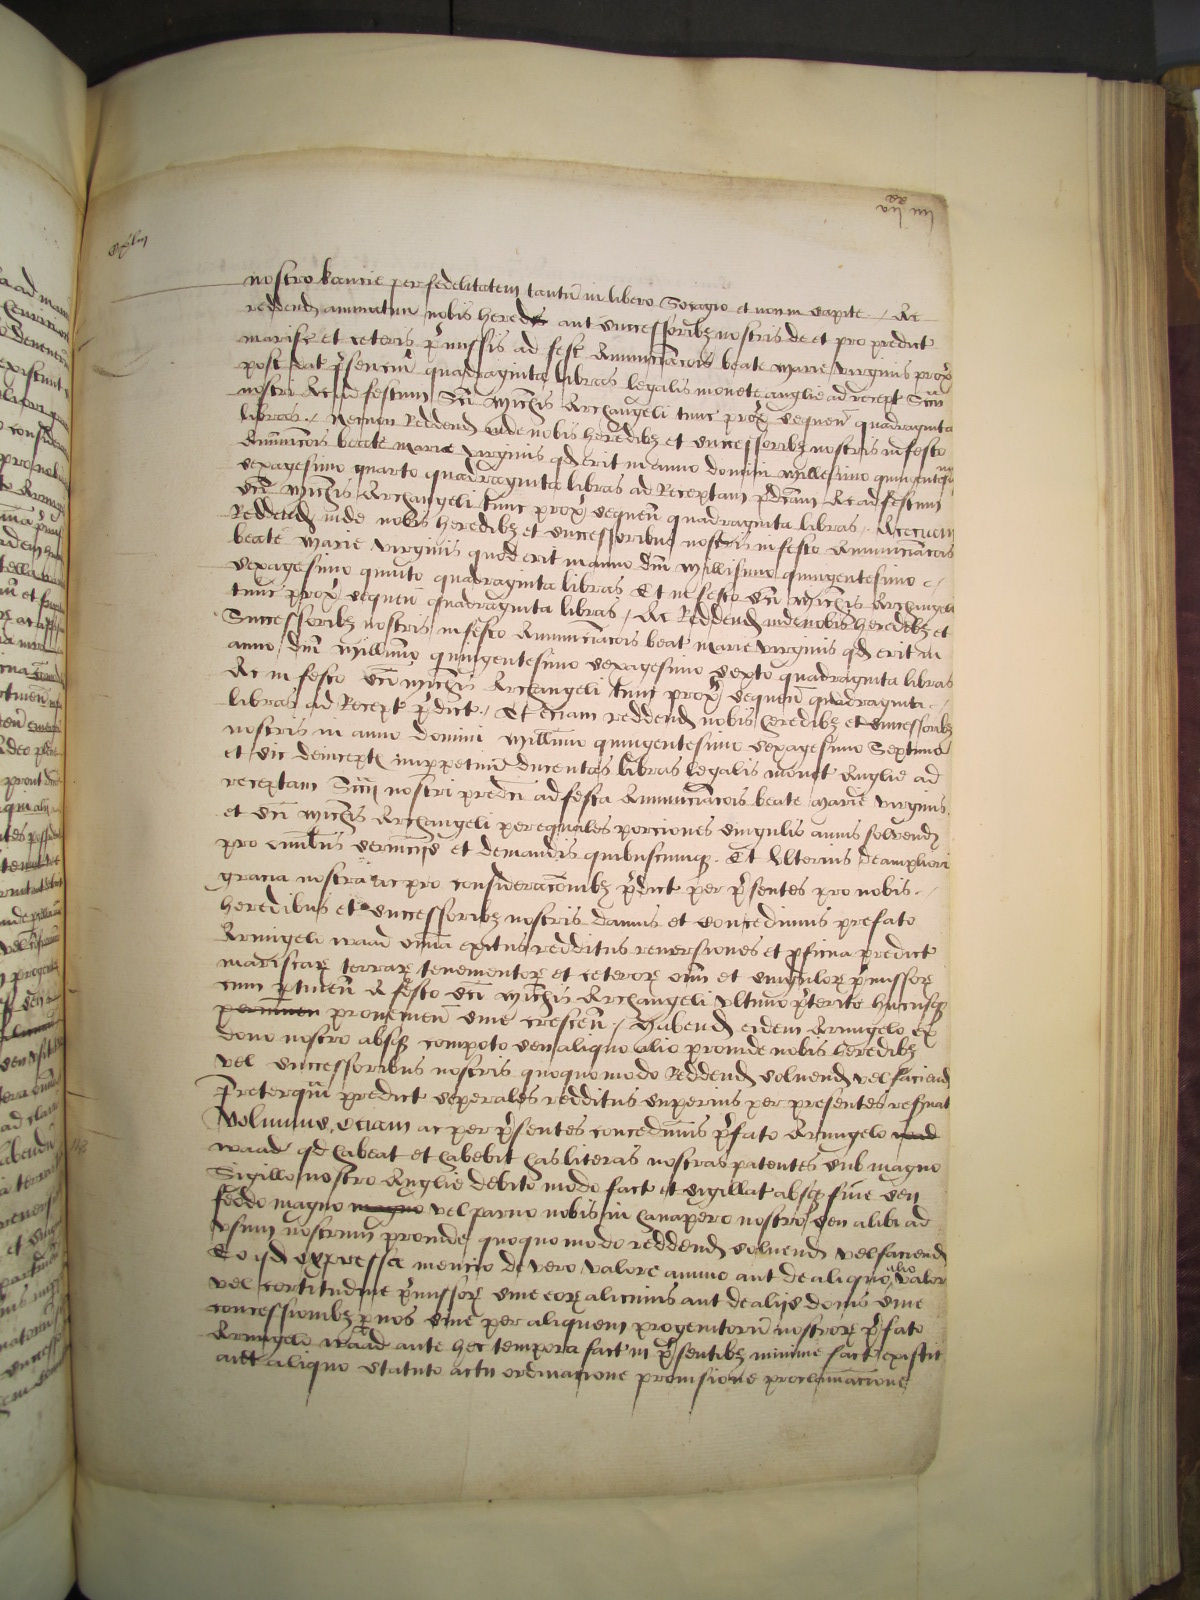 nostro kancie per fedelitatem tantū in libero Socagio et non in capite / Ac
reddend annuatim nobis hered aut successoribȝ nostris de et pro predict
marisc et ceteris p̄missis ad fest Annunciac̄ois beate marie virginis prox̄
post dat p̄senciū quadraginta libras legalis monete anglie ad recept Scc̄ij
nostri Ac ad festum Sc̄i Mich̄is Archangeli tunc prox̄ sequen̄ quadraginta
libras / Necnon Reddend inde nobis heredibȝ et successoribȝ nostris in festo
Annūciac̄ois beate marie virginis qd erit in anno domini millesimo quingentesimo
sexagesimo quarto quadraginta libras ad Receptam p̄dc̄am Ac ad festum
Sc̄i Mich̄is Archangeli tunc prox̄ sequen̄ quadraginta libras / Ac eciam
Reddend inde nobis heredibȝ et successoribus nostris in festo Annunciac̄ois
beate marie virginis quod erit in anno dn̄i Millisimo quingentesimo
sexagesimo quinto quadraginta libras Et in festo Sc̄i Mich̄is Archangeli
tunc prox̄ sequen̄ quadraginta libras / Ac Reddend inde nobis heredibȝ et
Successoribȝ nostris in festo Annunciac̄ois beat marie virginis qd erit in
anno dn̄i Mill̄imo quingentesimo sexagesimo sexto quadraginta libras
Ac in festo Sc̄i Mich̄is Archangeli tunc prox̄ sequen̄ quadraginta
libras ad Recept p̄dict / Et eciam reddend nobis heredibȝ et successoribȝ
nostris in anno domini Mill̄imo quingentesimo sexagesimo Septimo
et sic deincept imppetuū ducentas libras legalis monet Anglie ad
receptam Scc̄ij nostri predc̄i ad festa Annunciac̄ois beate Marie virginis
et Sc̄i Mich̄is Archangeli per equales porciones singulis annis solvend
pro om̄ibus serviciis et demandis quibuscumqȝ . Et Ulterius de ampliori
gracia nostra ac pro consideracōnibȝ p̄dict per p̄sentes pro nobis
heredibus et successoribȝ nostris damus et concedimus prefato
Armigelo waad om̄ia exitus redditus reversiones et p̄ficua predict
mariscaꝝ terraꝝ tenementoꝝ et ceteroꝝ om̄i et singuloꝝ p̄missoꝝ
cum ptinen̄ A festo Sc̄i Mich̄is Archangeli ultimo p̄terito hucusqȝ
provenien̄ sive crescen̄ / Habend eidem Armigelo ex
dono nostro absqȝ compoto seu aliquo alio proinde nobis heredibȝ
vel successoribus nostris quoquomodo Reddend solvend vel faciend
Preterqūm predict seperales redditus superius per presentes reservat
Volumus eciam ac per p̄sentes concedimus p̄fato Armigelo waad
waad qd habeat et habebit has literas nostras patentes sub magno
Sigillo nostro Anglie debito modo fact et sigillat absqȝ fine seu
feodo magno magno vel parvo nobis in hanapero nostro seu alibi ad
usum nostrum proinde quoquomodo reddend solvend vel faciend
Eo qd expressa mencio de vero valore annuo aut de aliquo alio valor
vel certitudine p̄missoꝝ sive eoꝝ alicuius aut de aliis donis sive
concessionibȝ p nos sive per aliquem progenitorū nostroꝝ p̄fato
Armigelo waad ante hec tempora fact in p̄sentibȝ minime fact existit
aut aliquo statuto actu ordinacione provisione proclamacione